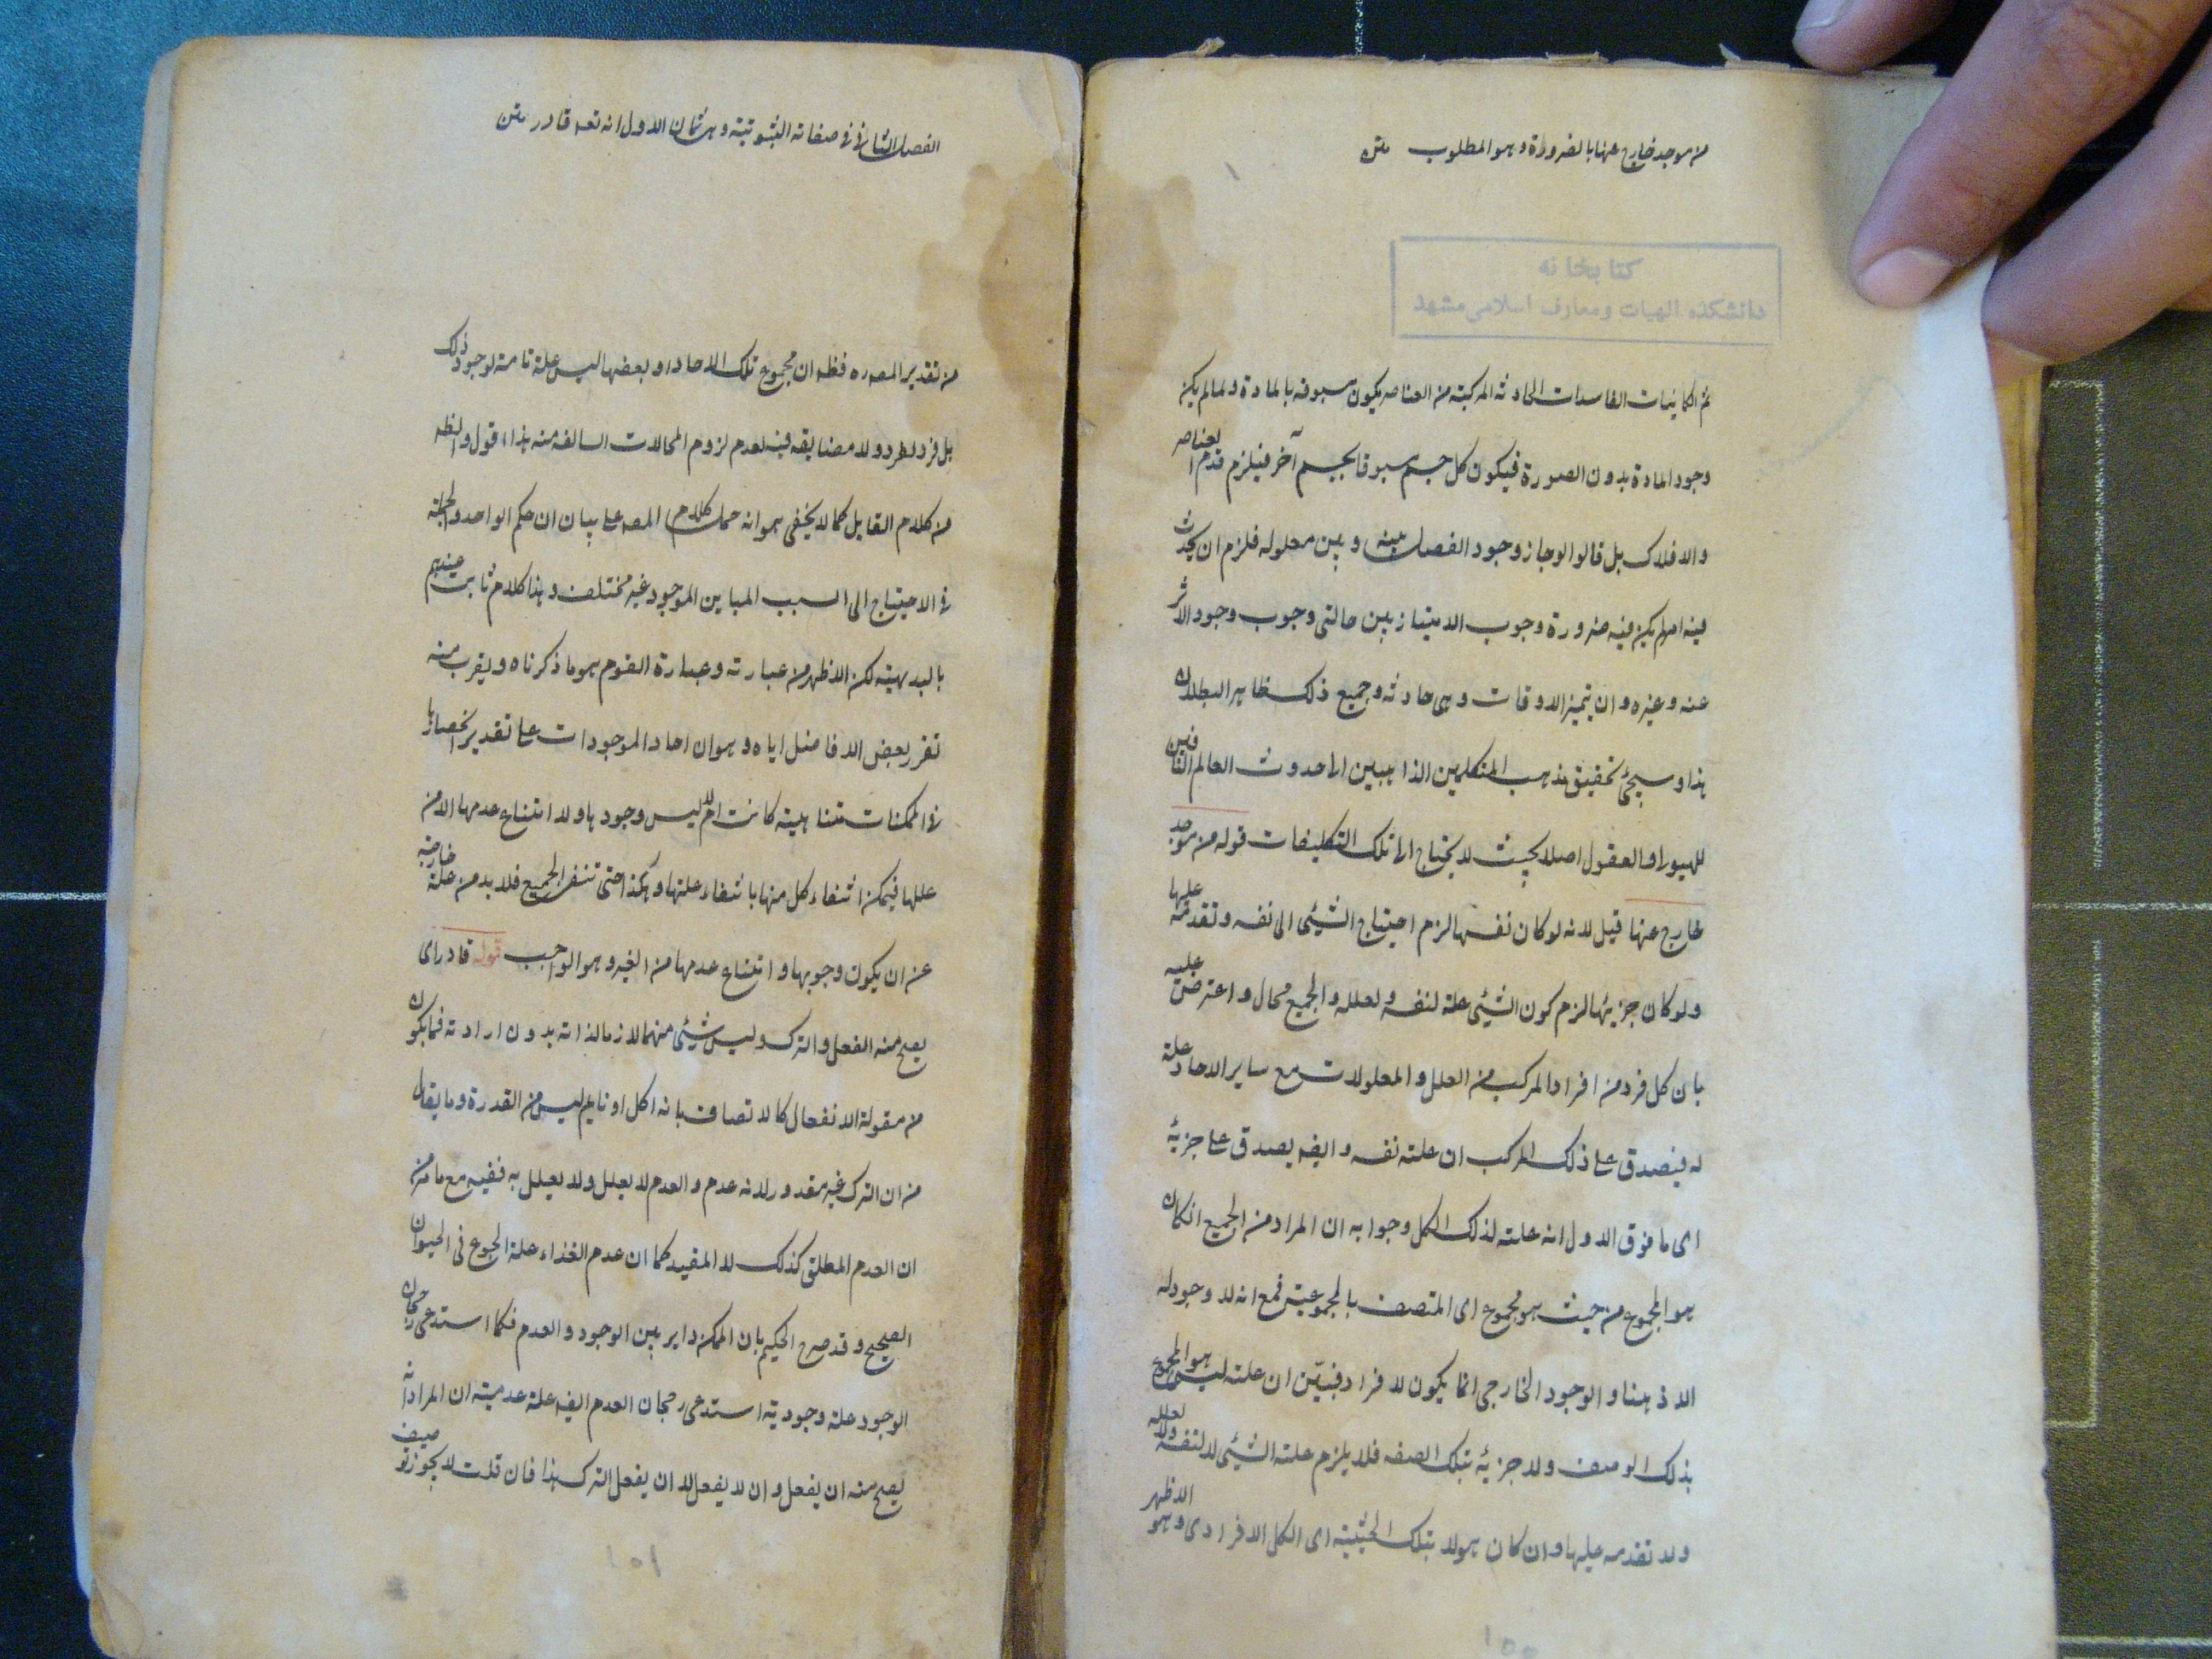 من موجد خارج عنها بالضرورة وهو المطلوب متن
کتابخانه
دانشکده الهیات ومعارف اسلامی مشهد
ثم الكاينات الفاسدات الحادثه المركبته من العناصر يكون مسبوقه بالمادة ولما لم يكن
وجود المادة بدون الصورة فيكون كل جسم مسبوقا بجسم آخر فيلزم قدم العناصر
والافلاك بل قالوا لو جاز وجود الفصل بينه وبين معلوله فلزم ان يحدث
فيه امر لم يكن فيه ضرورة وجوب الامتياز بين حالتى وجوب وجود الاثر
عنه وغيره وان يتميز الاوقات وهى حادثه وجميع ذلك ظاهر البطلان
هذا وسيجئ تحقيق مذهب المتكلمين الذاهبين الى حدوث العالم النافين
للهيولى والعقول اصلا بحيث لا يحتاج الى تلك التكليفات قوله من موجد
خارج عنها قيل لانه لو كان نفسها لزم احتياج الشيئى الى نفسه وتقدمه عليها
ولو كان جزيئها لزم كون الشيئى علة لنفسه ولعلله والجميع محال واعترض عليه
بان كل فرد من افراد المركب من العلل والمعلولات مع ساير الاحاد علة
له فيصدق على ذلك المركب ان علته نفسه وايضه يصدق على جزيئه
اى ما فوق الاول انه علته لذلك الكل وجوابه ان المراد من الجميع انكان
هو المجموع من حيث هو مجموع اى المتصف بالمجموعيته فمع انه لا وجود له
الا ذهنا والوجود الخارجى انما يكون لافراد فبيّن ان علته ليس هو المجموع
بذلك الوصف ولا جزيئه بتلك الصفه فلا يلزم علته الشيئى لا لنفسه ولا لعلله
ولا تقدمه عليها وان كان هو لا بتلك الحيثيته اى الكل الافرادى وهو الاظهر
١٥٥
الفصل الثانى فى صفاته الثبوتيته وهى ثمان الاول انه تعه قادر متن
من تقدير المصره فظه ان مجموع تلك الاحاد او بعضها ليس علة تامة لوجود ذلك
بل فرد لفرد ولا مضايقه فيه لعدم لزوم المحالات السالفه منه هذا اقول والظه
من كلام القايل كما لا يخفى هو انه حمل كلام المصه على بيان ان حكم الواحد والجملة
فى الاحتياج الى السبب المباين الموجود غير مختلف وهذا كلام ثابت عندهم
بالبديهيته لكن الاظهر من عبارته وعبارة القوم هو ما ذكرناه ويقرب منه
تقرر بعض الافاضل اياه وهو ان احاد الموجودات على تقدير انحصارها
فى الممكنات متناهيته كانت ام لا ليس وجودها ولا امتناع عدمها الا من
عللها فيمكن انتفاء كل منها بانتفاء علتها وهكذا حتى تنتفى الجميع فلا بد من علة خارجة
عن ان يكون وجوبها وامتناع عدمها من الغير وهو الواجب قوله قادر اى
يصح منه الفعل والترك وليس شيئى منهما لازما لذاته بدون ارادته فما يكون
من مقولة الانفعال كالاتصاف بانه اكل او نايم ليس من القدرة وما يقال
من ان الترك غير مقدور لانه عدم والعدم لا يعلل ولا يعلل به ففيه مع ما مر من
ان العدم المطلق كذلك لا المقيد كما ان عدم الغذاء علة الجوع فى الحيوان
الصحيح وقد صرح الحكيم بان الممكن داير بين الوجود والعدم فكما استدعى رجحان
الوجود علة وجوديته استدعى رجحان العدم ايضه علة عدميته ان المراد انه
يصح منه ان يفعل وان لا يفعل لا ان يفعل الترك هذا فان قلت لا يجوز توصيف
١٥١